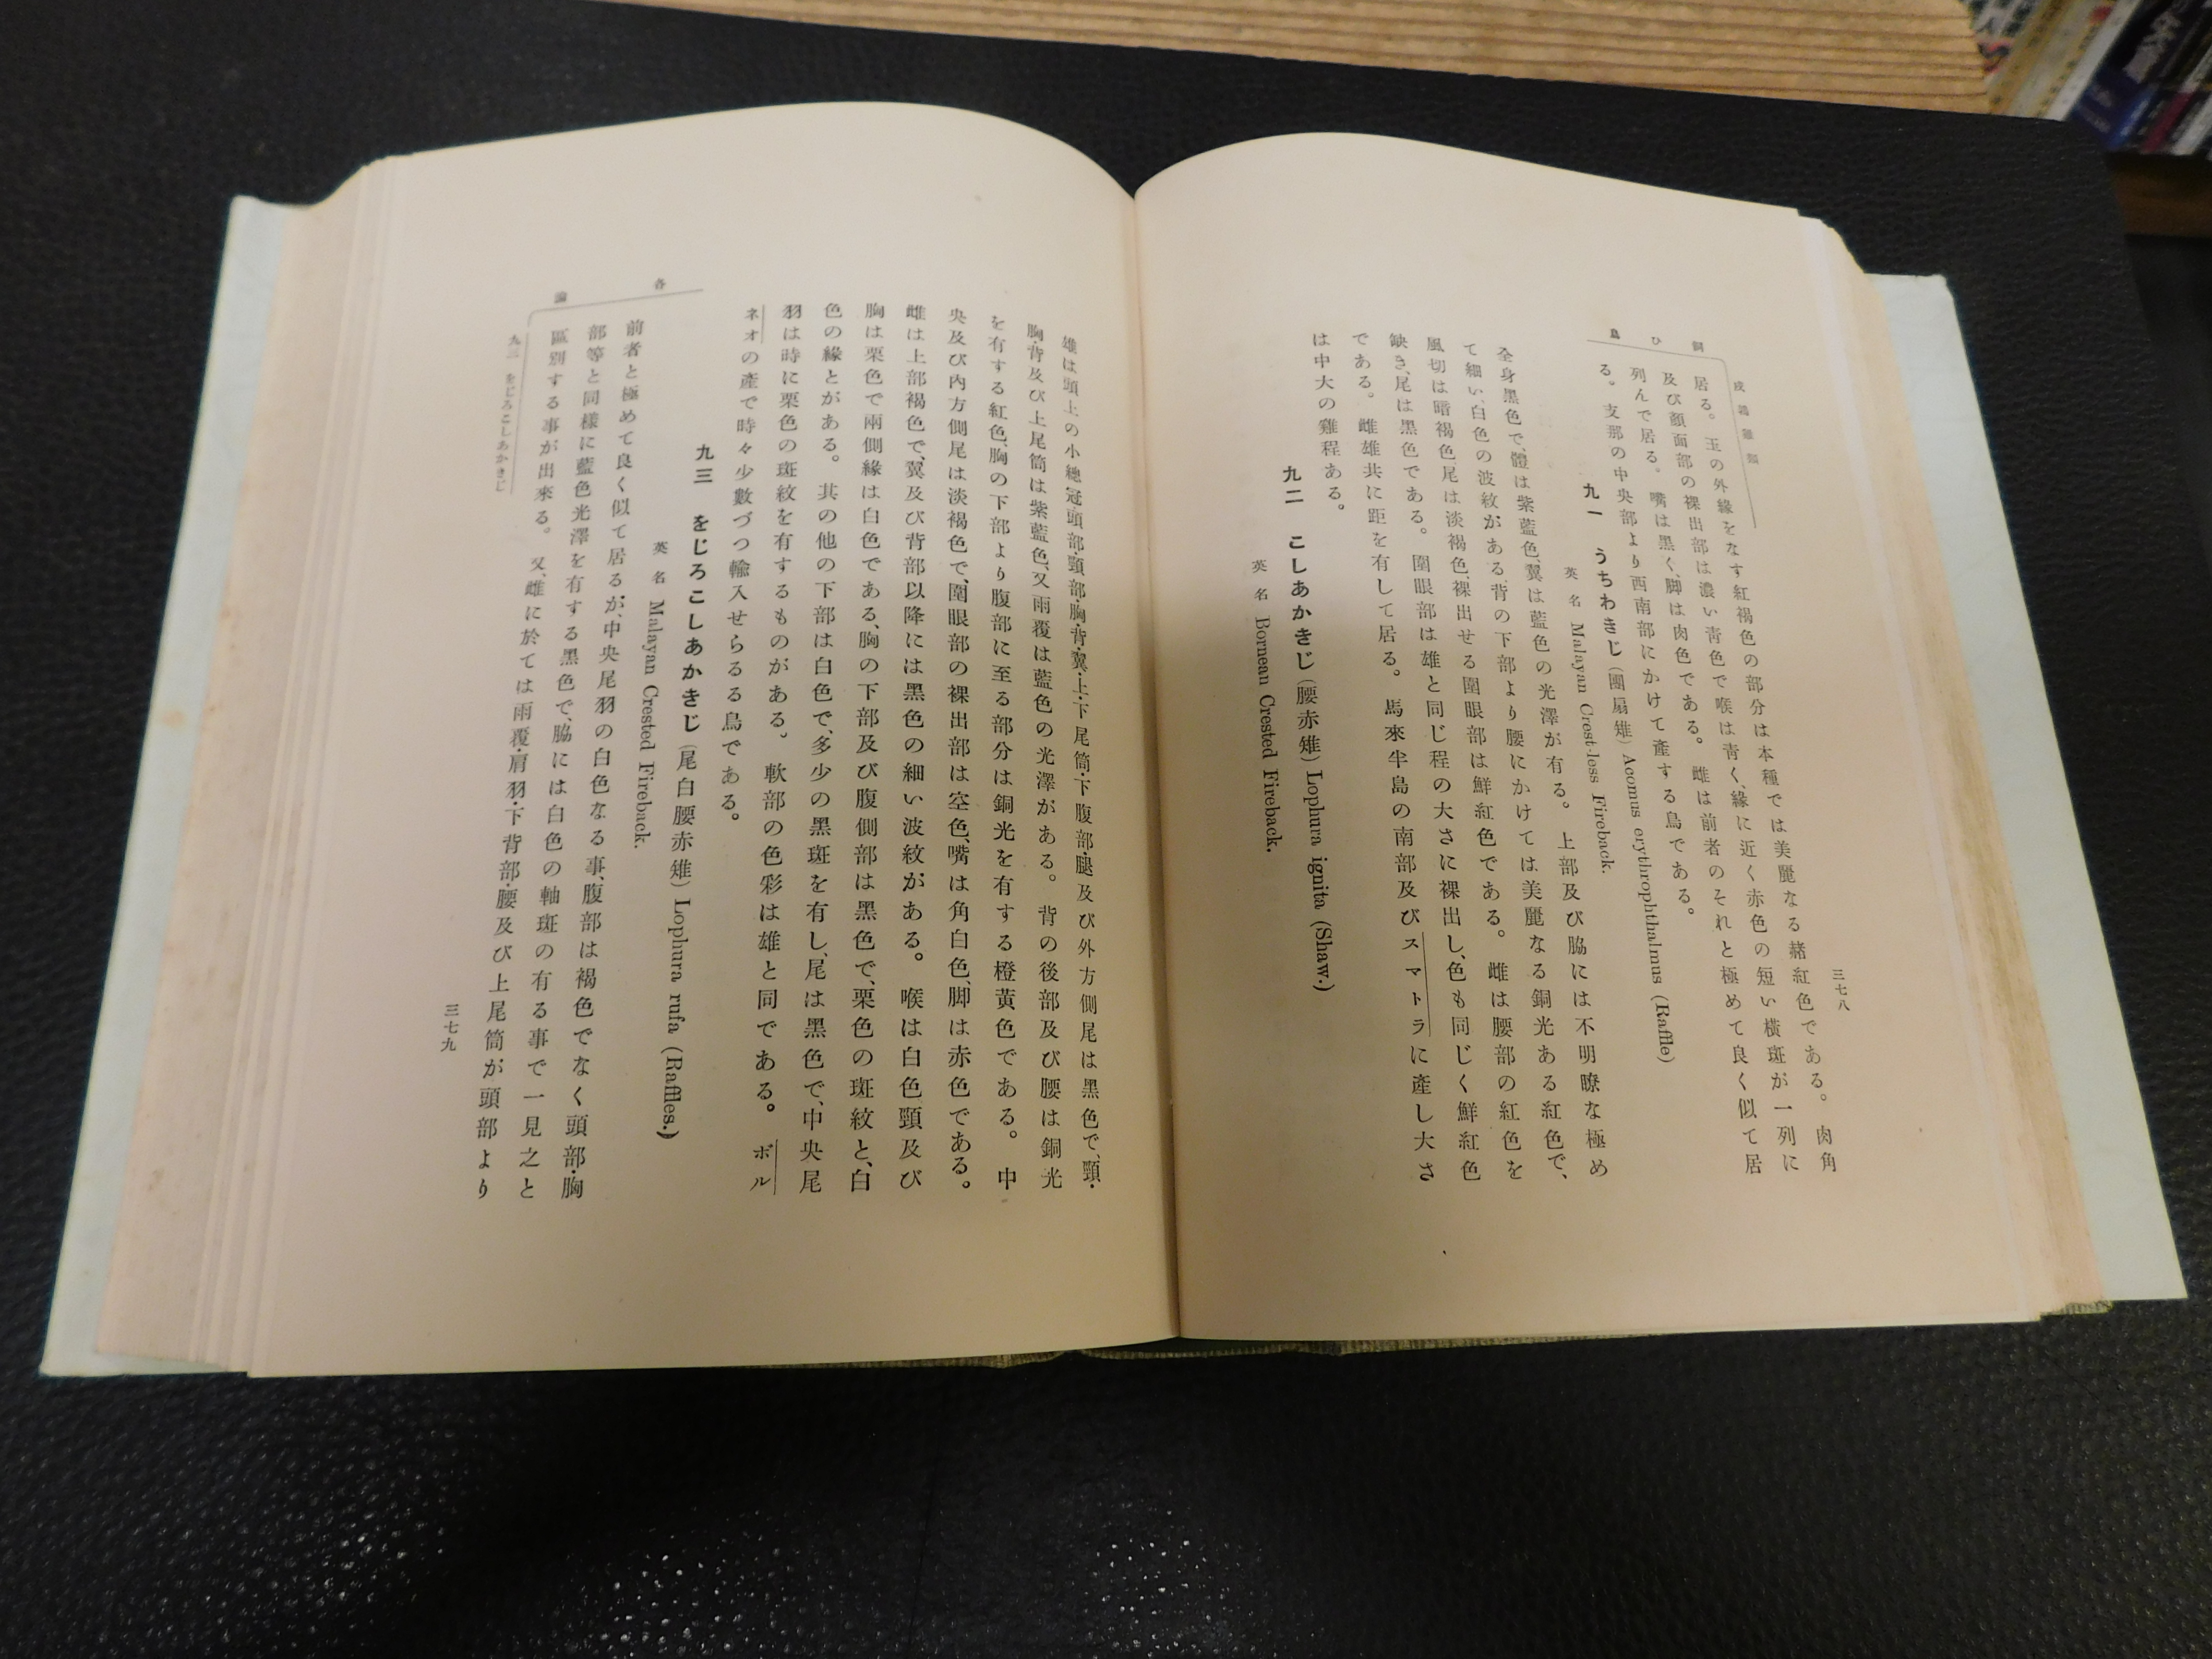 飼ひ鳥
三七八
居る。玉の外緣をなす紅褐色の部分は本種では美麗なる赭紅色である。肉角
及び顏面部の裸出部は濃い靑色で喉は靑く、緣に近く赤色の短い橫斑が一列に
列んで居る。嘴は黑く、脚は肉色である。雌は前者のそれと極めて良く似て居
る。支那の中央部より西南部にかけて產する鳥である。
九一 うちわきじ (團扇雉) Acomus erythrophthalmus (Raffle)
英名 Malayan Crest-less Fireback.
全身黑色で、體は紫藍色、翼は藍色の光澤が有る。上部及び脇には不明瞭な極め
て細い、白色の波紋がある、背の下部より腰にかけては美麗なる銅光ある紅色で、
風切は暗褐色尾は淡褐色、裸出せる圍眼部は鮮紅色である。雌は腰部の紅色を
缺き、尾は黑色である。圍眼部は雄と同じ程の大さに裸出し、色も同じく鮮紅色
である。雌雄共に距を有して居る。馬來半島の南部及びスマトラに產し大さ
は中大の雞程ある。
九二 こしあかきじ (腰赤雉) Lophura ignita (Shaw.)
英名 Bornean Crested Fireback.
雄は頭上の小總冠頭部・頸部・胸・背・翼・上・下尾筒・下腹部・腿及び外方側尾は黑色で、頸・
胸・背及び上尾筒は紫藍色、又雨覆は藍色の光澤がある。背の後部及び腰は銅光
を有する紅色、胸の下部より腹部に至る部分は銅光を有する橙黃色である。中
央及び內方側尾は淡褐色で、圍眼部の裸出部は空色、嘴は角白色、脚は赤色である。
雌は上部褐色で、翼及び背部以降には黑色の細い波紋がある。喉は白色頸及び
胸は栗色で兩側緣は白色である、胸の下部及び腹側部は黑色で、栗色の斑紋と、白
色の緣とがある。其の他の下部は白色で、多少の黑斑を有し、尾は黑色で、中央尾
羽は時に栗色の斑紋を有するものがある。軟部の色彩は雄と同である。ボル
ネオの產で時々少數づつ輸入せらるる鳥である。
九三 をじろこしあかきじ (尾白腰赤雉) Lophura rufa (Raffles.)
英名 Malayan Crested Fireback.
前者と極めて良く似て居るが、中央尾羽の白色なる事、腹部は褐色でなく頭部・胸
部等と同樣に藍色光澤を有する黑色で、脇には白色の軸斑の有る事で一見之と
區別する事が出來る。又、雌に於ては雨覆・肩羽・下背部・腰及び上尾筒が頭部より
各論
九三 をじろこしあかきじ
三七九